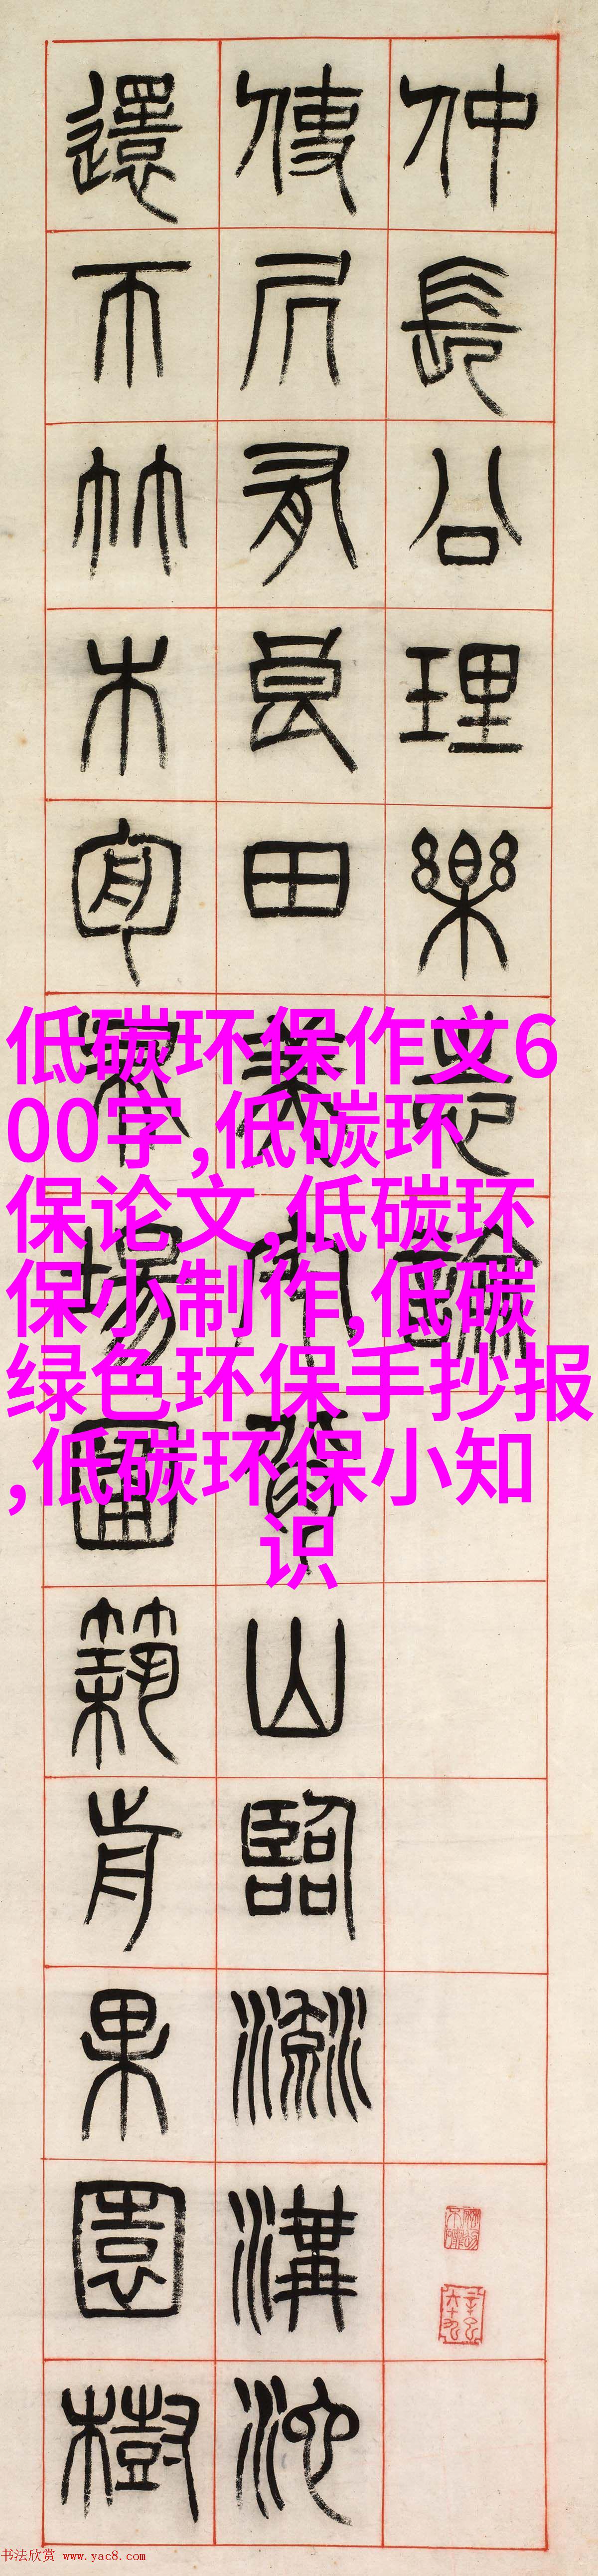 仲長公理樂志論
使凥有良田廣宅背山臨流溝池
還帀竹木周布場圃築前果園樹
低碳环保作文6
00字,低碳环
保论文,低碳环
保小制作,低碳
绿色环保手抄报
,低碳环保小知
识
书法欣赏 www.yac8.com